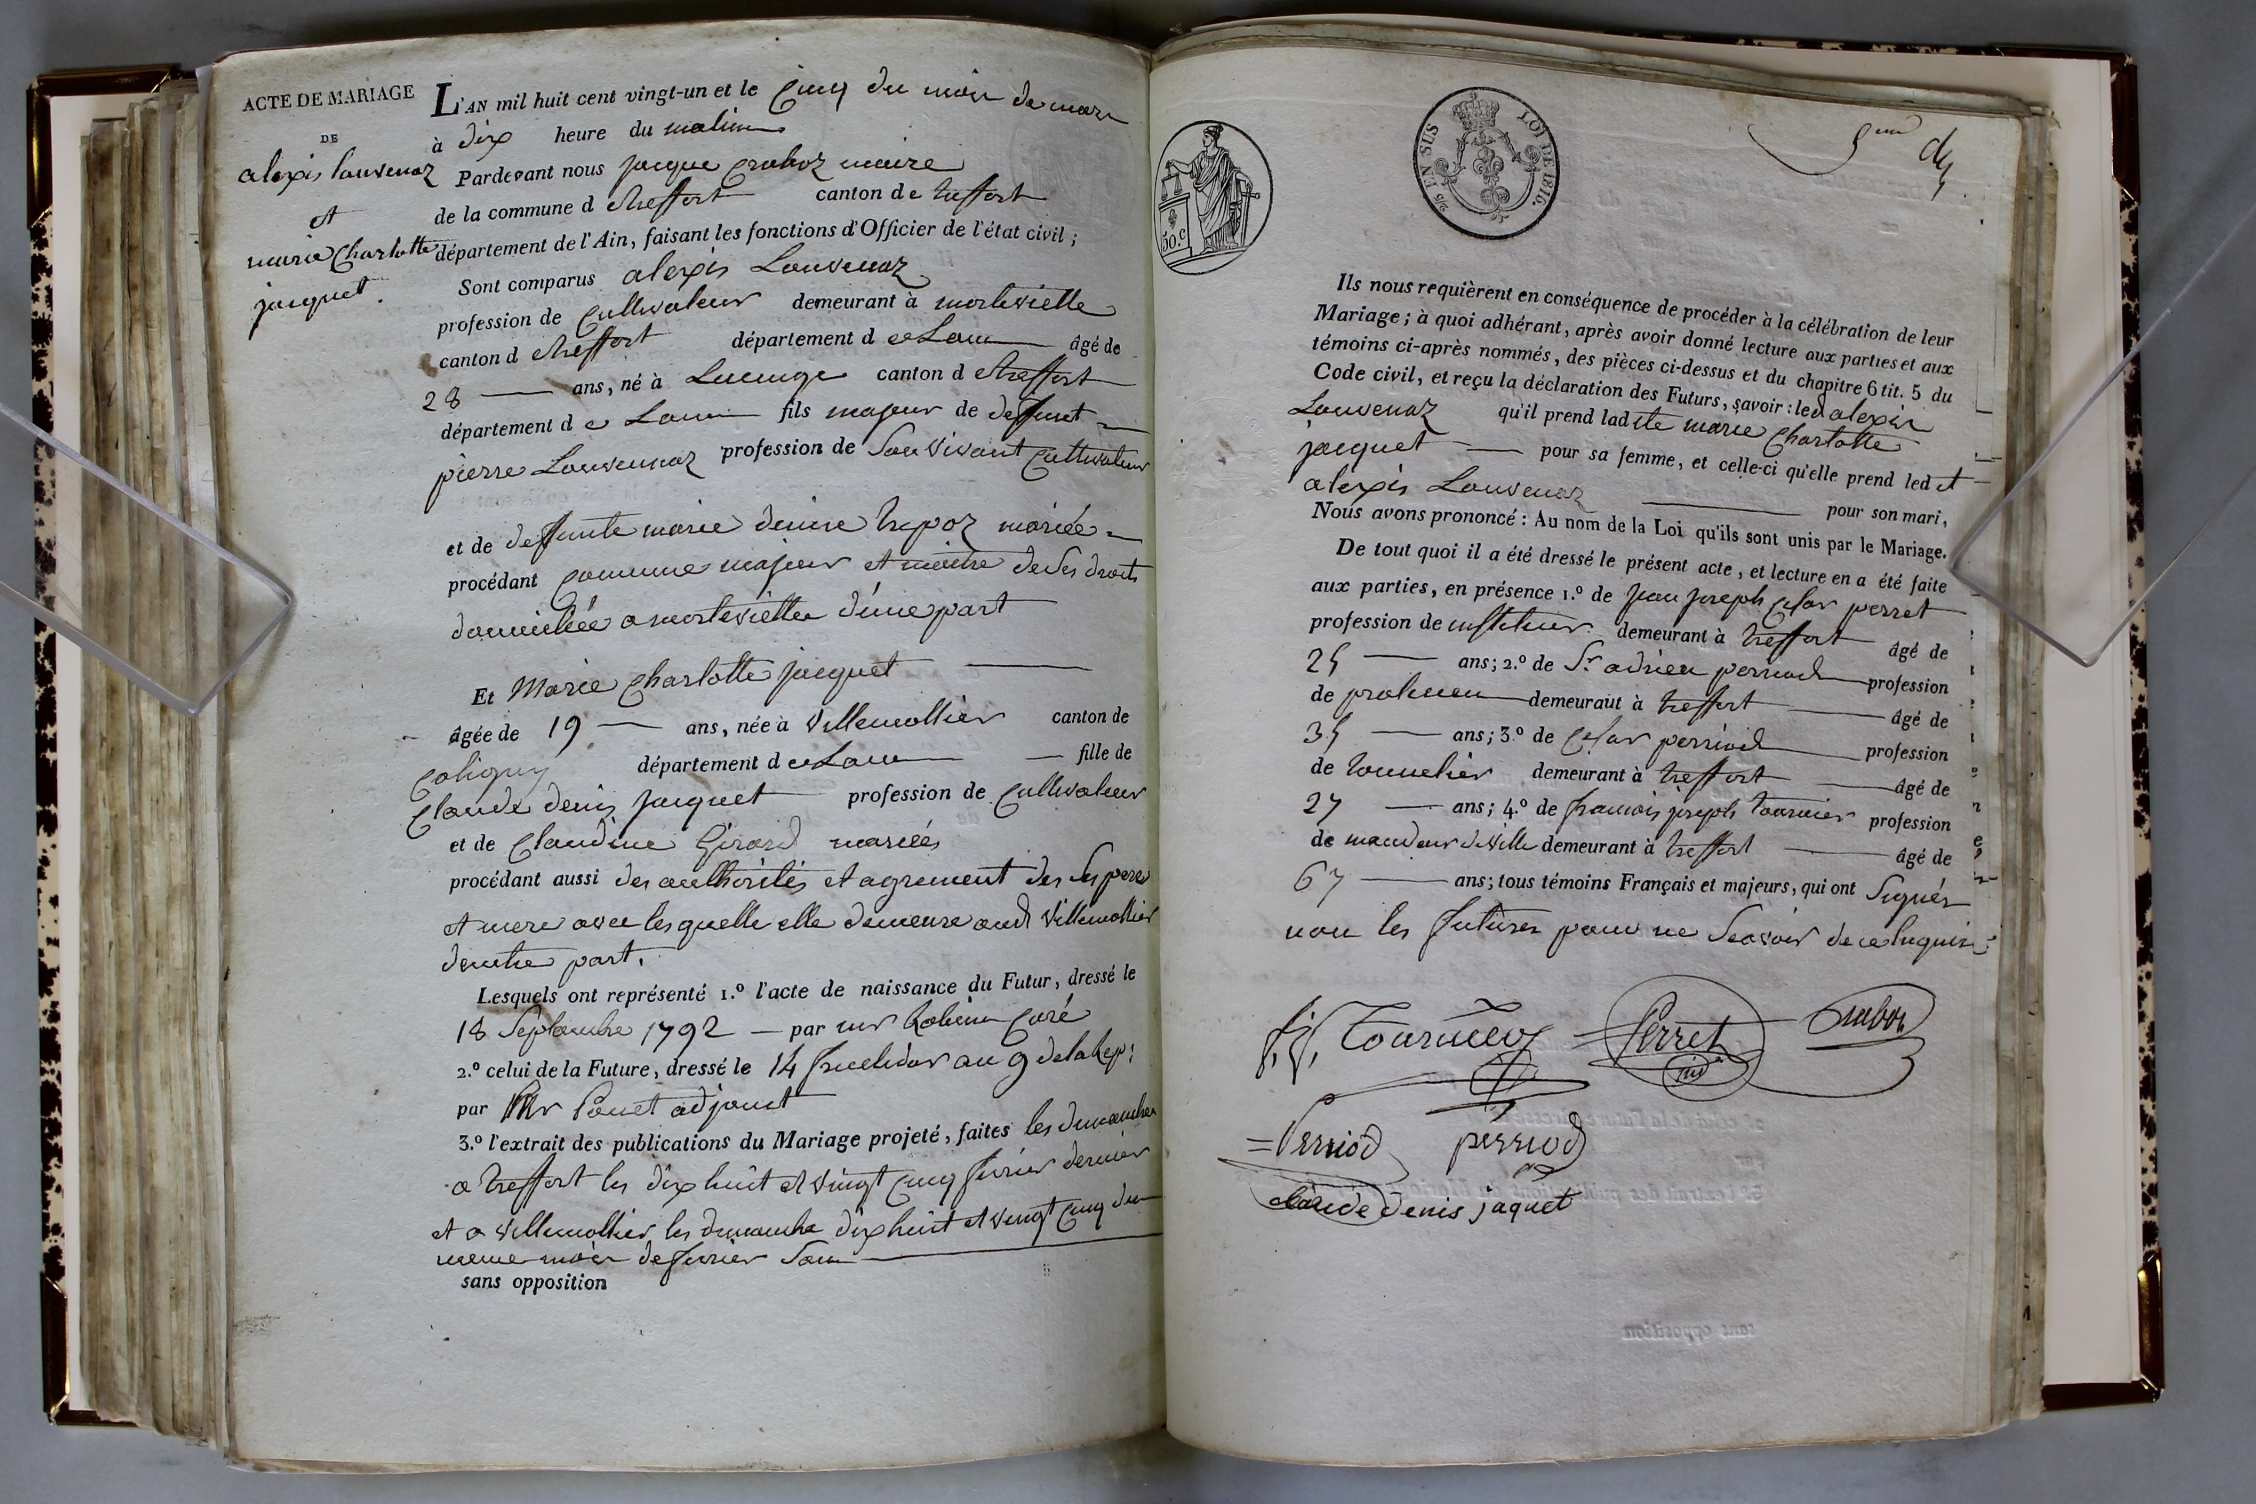 ACTE DE MARIAGE
DE
alexis Louvenaz
et
marie Charlotte
jacquet.
L'AN mil huit cent vingt-un et le Cinq du mois de mars
à dix heure du matin
Pardevant nous jacque maire
de la commune d etreffort canton de treffort
département de l'Ain, faisant les fonctions d'Officier de l'état civil ;
Sont comparus alexis Louvenaz
profession de Cultivateur demeurant à
canton d etreffort département d eLain âgé de
28 ans, né à canton d etreffort
département d e Lain fils majeur de deffunt
pierre Louvenaz profession de Son vivant Cultivateur
et de deffunte marie denise trepoz mariée
procédant Comme majeur et maitre de Ses droits
domiciliée a d'une part
Et Marie Charlotte jacquet
âgée de 19 ans, née à Villemottier canton de
Coligny département d eLain fille de
Claude denis jacquet profession de Cultivateur
et de Claudine Girard mariées
procédant aussi des authorités et agrement des Ses pere
et mere avec les quelle elle demeure audt Villemottier
dautre part.
Lesquels ont représenté 1.º l'acte de naissance du Futur, dressé le
18 Septembre 1792 par mr Curé
2.º celui de la Future, dressé le 14 fructidor an 9 de la Rep:
par Mr adjoint
3.º l'extrait des publications du Mariage projeté, faites les dimanches
a treffort les dix huit et vingt Cinq fevrier dernier
et a villemottier les dimanche dix huit et vingt Cinq du
meme mois de fevrier
sans opposition
5eme
95 EN SUS LOI DE 1816.
50.c
Ils nous requièrent en conséquence de procéder à la célébration de leur
Mariage ; à quoi adhérant, après avoir donné lecture aux parties et aux
témoins ci-après nommés, des pièces ci-dessus et du chapitre 6 tit. 5 du
Code civil, et reçu la déclaration des Futurs, savoir : led alexis
Louvenaz qu'il prend ladite marie Charlotte
jacquet pour sa femme, et celle-ci qu'elle prend led et
alexis Louvenaz pour son mari,
Nous avons prononcé : Au nom de la Loi qu'ils sont unis par le Mariage.
De tout quoi il a été dressé le présent acte, et lecture en a été faite
aux parties, en présence 1.º de jean joseph perret
profession de instituteur demeurant à treffort âgé de
25 ans ; 2.º de Sr adrien perriod profession
de praticien demeurant à treffort âgé de
35 ans ; 3.º de perriod profession
de tonnelier demeurant à treffort âgé de
27 ans ; 4.º de francois joseph tournier profession
de mandeur de ville demeurant à treffort âgé de
67 ans ; tous témoins Français et majeurs, qui ont Signés
non les futures pour ne Scavoir de ce enquis
f.j. Tournier Perret
Perriod perriod
claude denis jaquet